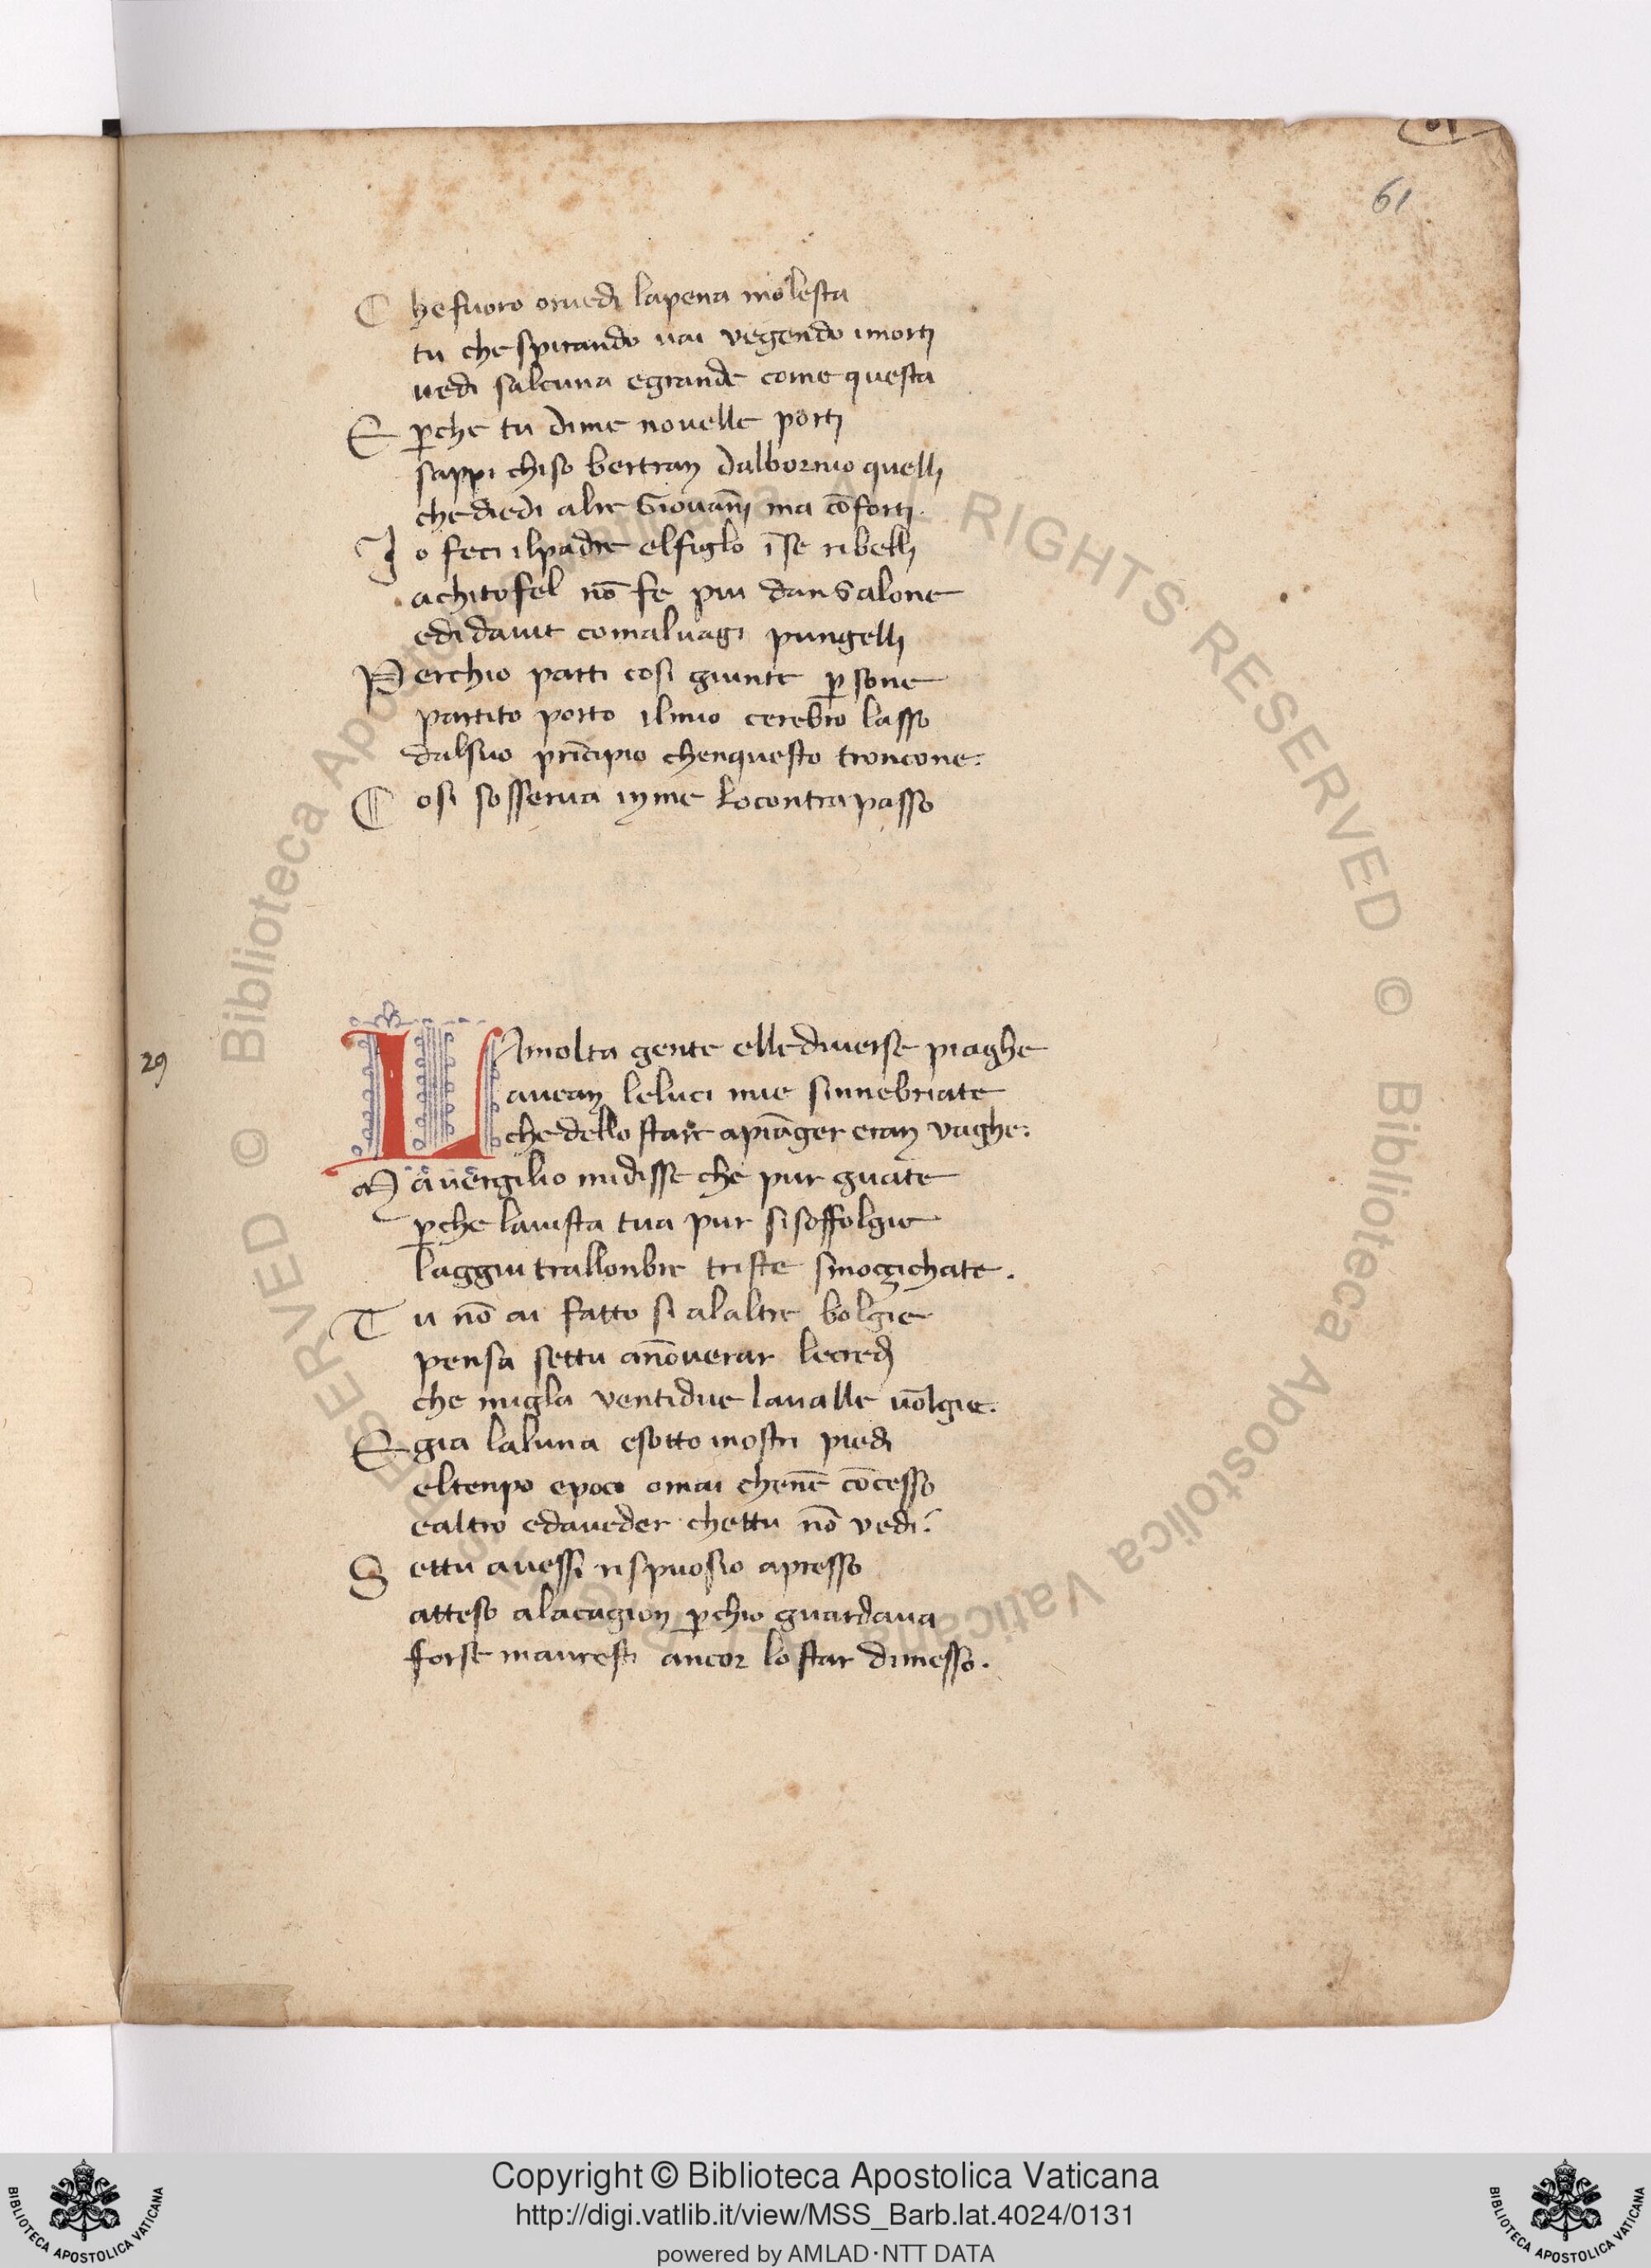 61
61
C hefuoro oruedi lapena molesta
tu chespirando uai vegendo imorti
uedi salcuna egrande come questa
E p̱che tu dime nouelle porti
sappi chiso bertran dalbornio quelli
chediedi alre Giouāni ma cōforti.
I o feci ilpadre elfiglo īse ribelli
achitofel nō fe piu dansalone
edi dauit comaluagi pungelli
P erchio parti cosi giunte p̱sone
partito porto ilmio cerebro lasso
dalsuo prīcipio chenquesto troncone.
C osi sosserua inme locontrapasso
29
L Amolta gente elle diuerse piaghe
auean leluci mie sinnebriate
che dello stare apiāger eran vaghe.
M a uergilio midisse che pur guate
p̱che lauista tua pur si soffolgie
laggiu trallonbre triste smozzichate.
T u nō ai fatto si alaltre bolgie
pensa settu anōuerar lecredi
che migla ventidue laualle uolgie.
E gia laluna esotto inostri piedi
eltenpo epoco omai chenē cōcesso
ealtro edaueder chettu nō vedi.
S ettu auessi rispuosio apresso
atteso alacagion p̱chio guardaua
forse mauresti ancor lo star dimesso.
© Biblioteca Apostolica Vaticana ALL RIGHTS RESERVED © Biblioteca Apostolica Vaticana ALL RIGHTS RESERVED
BIBLIOTECA APOSTOLICA VATICANA
Copyright © Biblioteca Apostolica Vaticana
http://digi.vatlib.it/view/MSS_Barb.lat.4024/0131
powered by AMLAD·NTT DATA
BIBLIOTECA APOSTOLICA VATICANA